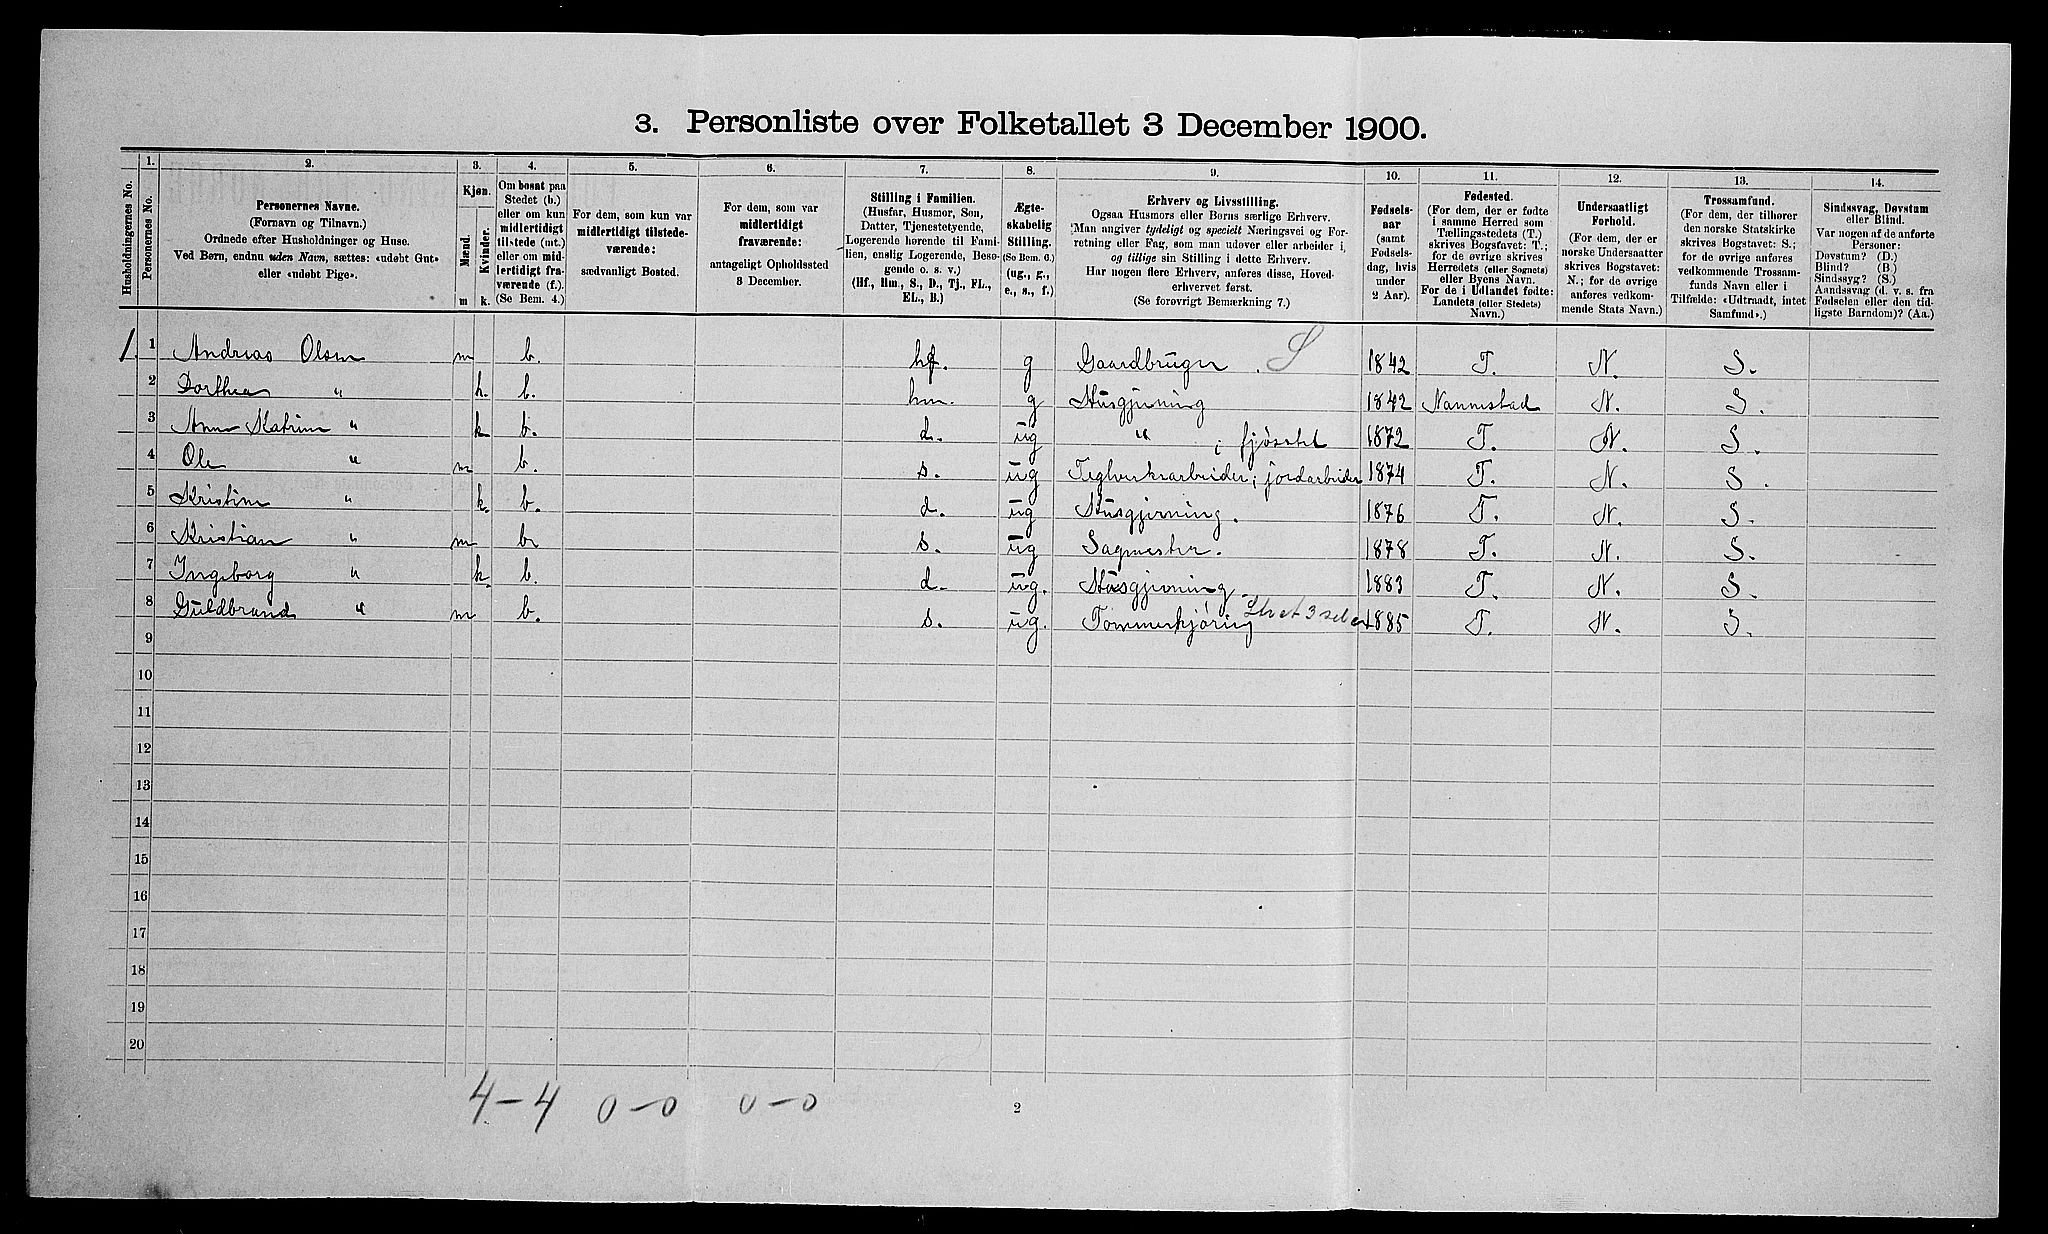 3. Personliste over Folketallet 3 December 1900.
Husholdningernes No.
1. Personernes No.
2. Personernes Navne.
(Fornavn og Tilnavn.)
Ordnede efter Husholdninger og Huse.
Ved Børn, endnu uden Navn, sættes: «udøbt Gut»
eller «udøbt Pige».
3. Kjøn.
Mænd.
Kvinder.
m k.
4. Om bosat paa
Stedet (b.)
eller om kun
midlertidigt
tilstede (mt.)
eller om mid-
lertidigt fra-
værende (f.).
(Se Bem. 4.)
5. For dem, som kun var
midlertidigt tilstede-
værende:
sædvanligt Bosted.
6. For dem, som var
midlertidigt
fraværende:
antageligt Opholdssted
3 December.
7. Stilling i Familien.
(Husfar, Husmor, Søn,
Datter, Tjenestetyende,
Logerende hørende til Fami-
lien, enslig Logerende, Besø-
gende o. s. v.)
(Hf., Hm., S., D., Tj., FL.,
EL., B.)
8. Ægte-
skabelig
Stilling.
(Se Bem. 6.)
(ug., g.,
e., s., f.)
9. Erhverv og Livsstilling.
Ogsaa Husmors eller Børns særlige Erhverv.
Man angiver tydeligt og specielt Næringsvei og For-
retning eller Fag, som man udøver eller arbeider i,
og tillige sin Stilling i dette Erhverv.
Har nogen flere Erhverv, anføres disse, Hoved-
erhvervet først.
(Se forøvrigt Bemærkning 7.)
10. Fødsels-
aar
(samt
Fødsels-
dag, hvis
under
2 Aar).
11. Fødested.
(For dem, der er fødte
i samme Herred som
Tællingsstedets (T.)
skrives Bogstavet: T.;
for de øvrige skrives
Herredets (eller Sognets)
eller Byens Navn.
For de i Udlandet fødte:
Landets (eller Stedets)
Navn.)
12. Undersaatligt
Forhold.
(For dem, der er
norske Undersaatter
skrives Bogstavet:
N.; for de øvrige
anføres vedkom-
mende Stats Navn.)
13. Trossamfund.
(For dem, der tilhører
den norske Statskirke
skrives Bogstavet: S.;
for de øvrige anføres
vedkommende Trossam-
funds Navn eller i
Tilfælde: «Udtraadt, intet
Samfund».)
14. Sindssvag, Døvstum
eller Blind.
Var nogen af de anførte
Personer:
Døvstum? (D.)
Blind? (B.)
Sindssyg? (S.)
Aandssvag (d. v. s. fra
Fødselen eller den tid-
ligste Barndom)? (Aa.)
1. 1 Andreas Olsen m b. hf. g Gaardbruger. S 1842 T. N. S.
2 Dorthea " k. b. hm. g Husgjerning 1842 Nannestad N. S.
3 Anne Katrine " k b. d. ug " ; fjøsstel 1872 T. N. S.
4 Ole " m b. s. ug Teglverksarbeider; jordarbeider 1874 T. N. S.
5 Kristine " k. b. d. ug Husgjerning. 1876 T. N. S.
6 Kristian " m b. s. ug Sagmester. 1878 T. N. S.
7 Ingeborg " k. b. d. ug. Husgjerning. 1883 T. N. S.
8 Guldbrand " m b. s. ug. Tømmerkjøring 1885 T. N. S.
9
10
11
12
13
14
15
16
17
18
19
20
4-4 0-0 0-0
2